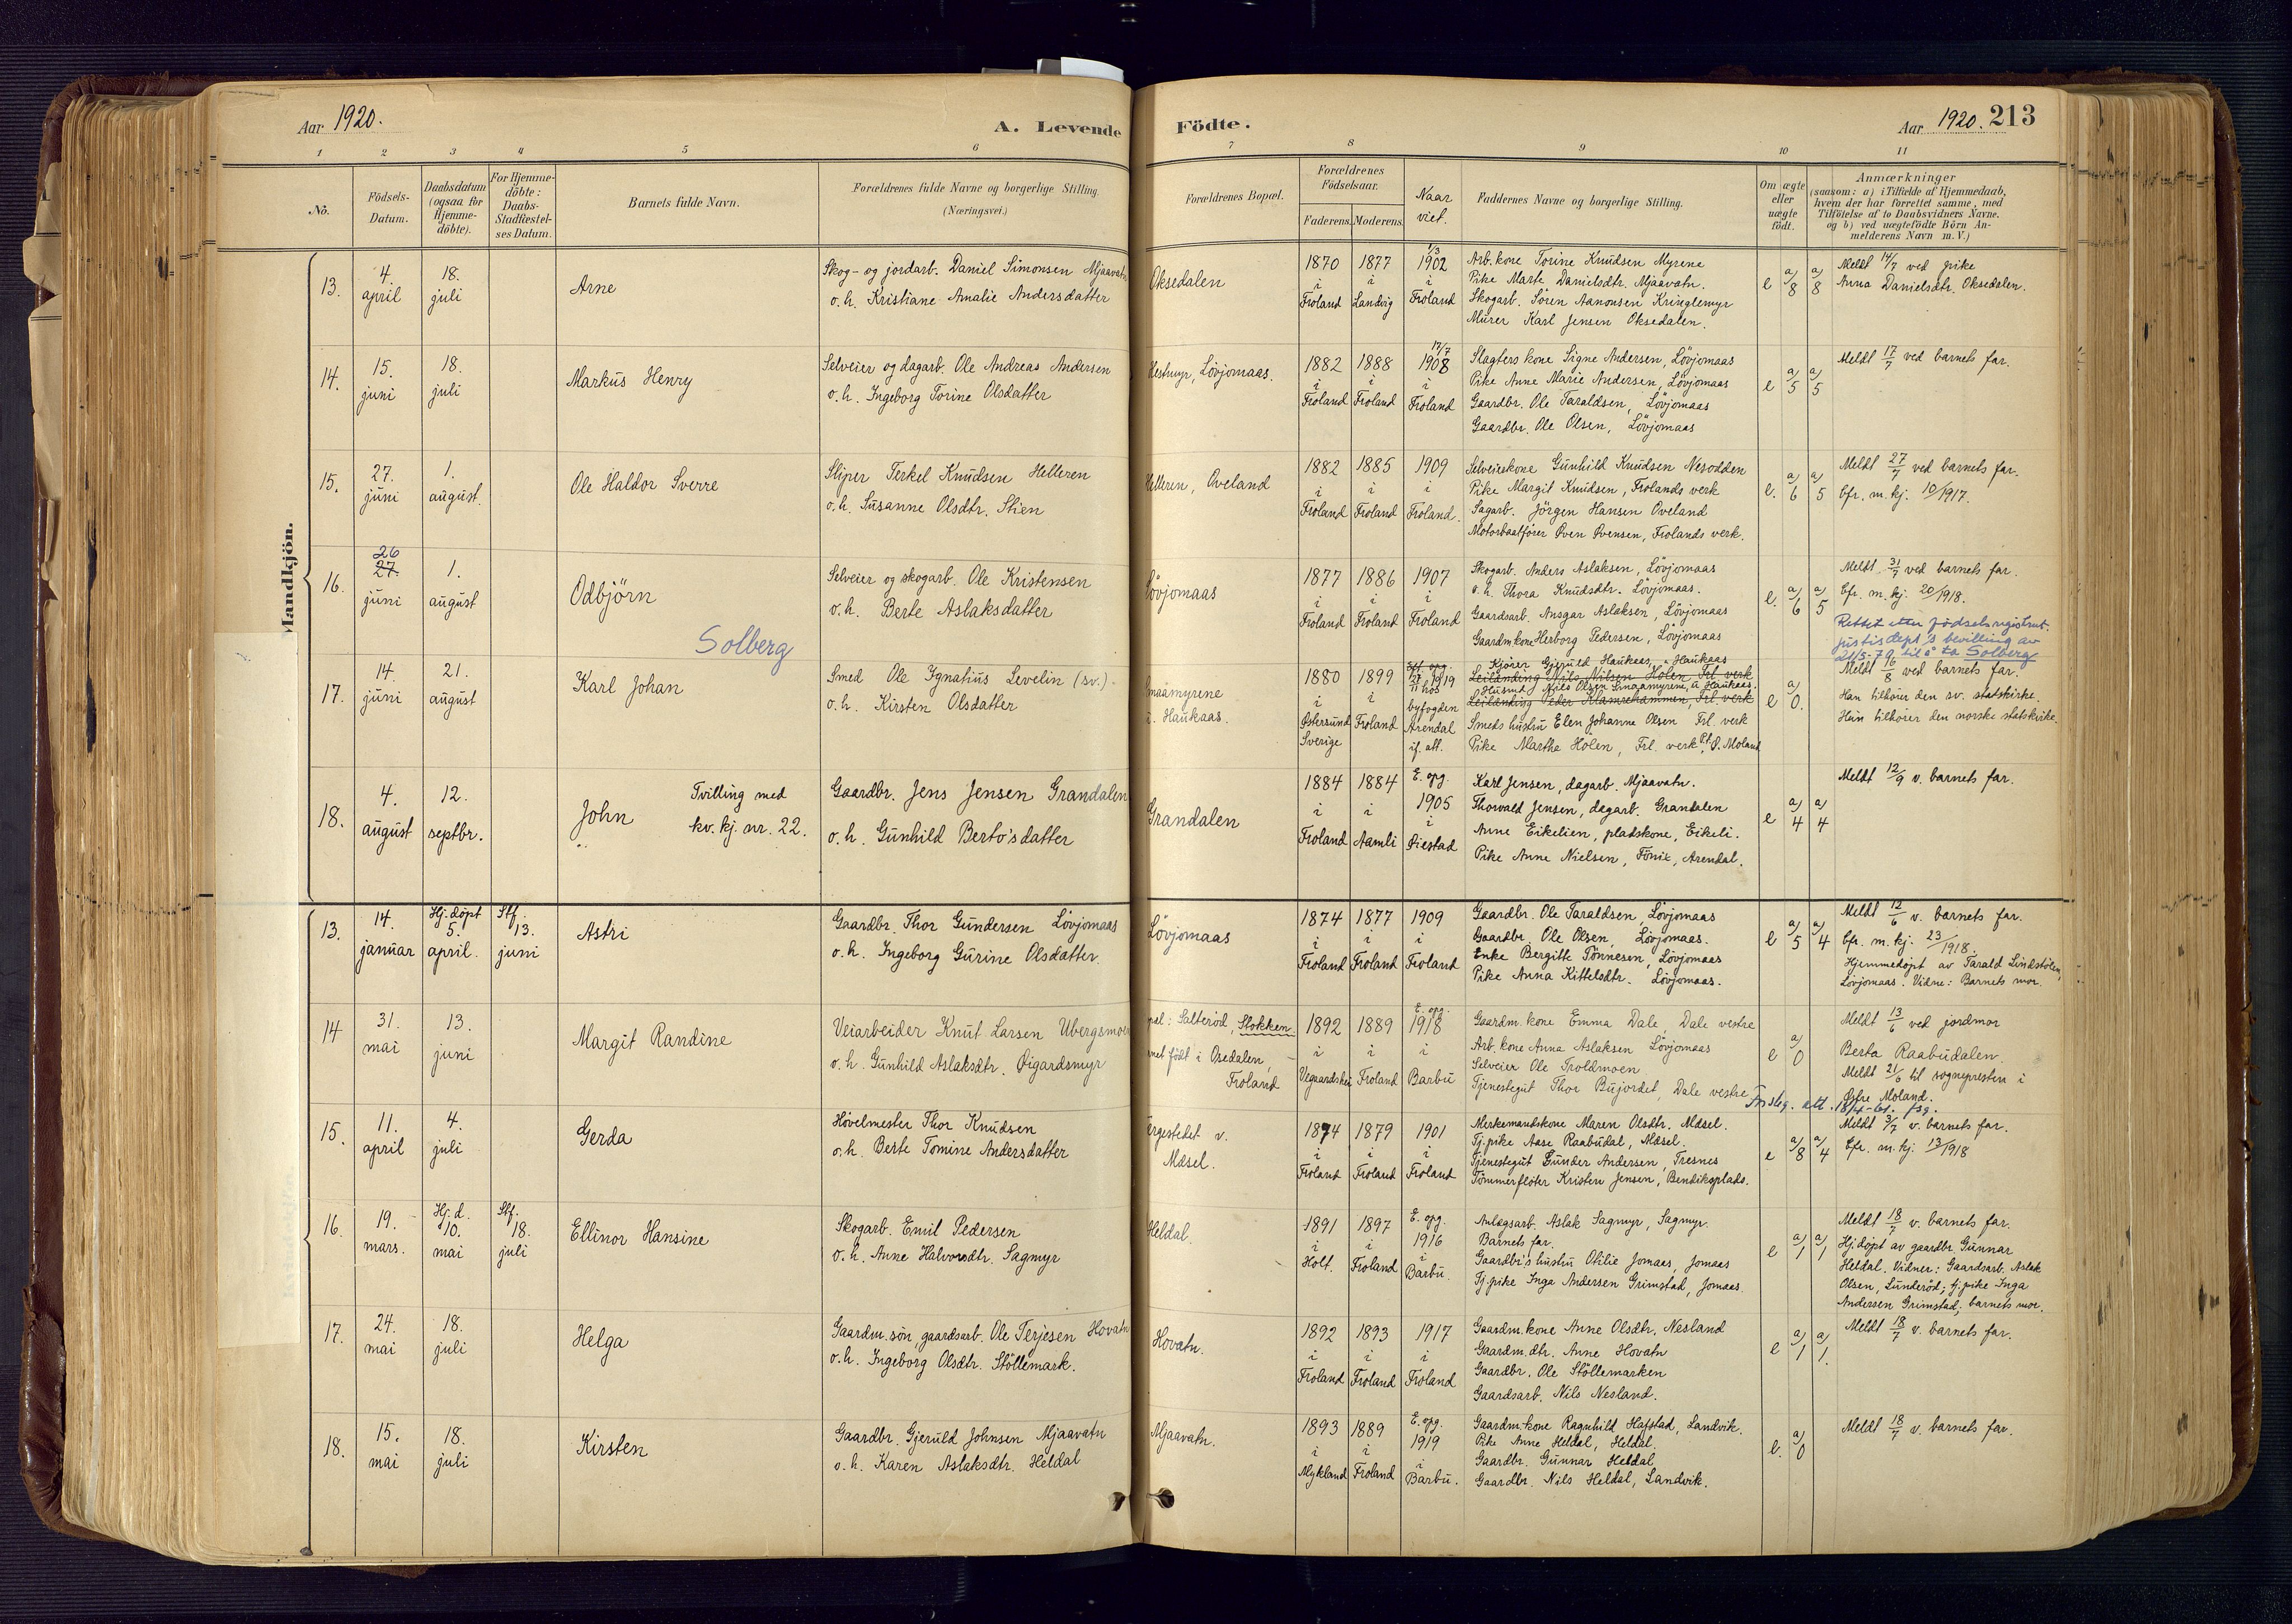 Aar 1920.
A. Levende
Födte.
Aar 1920. 213
1 2 3 4 5 6 7 8 9 10 11
No.
Födsels-Datum.
Daabsdatum (ogsaa for Hjemme-döbte).
For Hjemme-döbte: Daabs-Stadfæstel-ses Datum.
Barnets fulde Navn.
Forældrenes fulde Navne og borgerlige Stilling. (Næringsvei.)
Forældrenes Bopæl.
Forældrenes Födselsaar.
Faderens. Moderens.
Naar viet.
Faddernes Navne og borgerlige Stilling.
Om ægte eller uægte födt.
Anmærkninger
(saasom: a) i Tilfælde af Hjemmedaab, hvem der har forrettet samme, med Tilföielse af to Daabsvidners Navne. og b) ved uægtefödte Börn Anmelderens Navn m. V.)
Mandkjön.
13. 4. april 18. juli
Arne
Skog- og jordarb. Daniel Simonsen Mjaavatn
o. h. Kristiane Amalie Andersdatter
Oksedalen
1870 i Froland 1877 i Landvig 1/3 1902 i Froland
Arb. kone Torine Knudsen Myrene
Pike Marte Danielsdtr. Mjaavatn.
Skogarb. Sören Aanonsen Kringlemyr
Murer Karl Jensen Oksedalen.
e a/8 a/8
Meldt 14/7 ved pike
Anna Danielsdtr. Oksedalen.
14. 15. juni 18. juli
Markus Henry
Selveier og dagarb. Ole Andreas Andersen
o. h. Ingeborg Torine Olsdatter
Hestmyr, Lövjomaas.
1882 i Froland 1888 i Froland 17/7 1908 i Froland
Slagters kone Signe Andersen, Lövjomaas
Pike Anne Marie Andersen, Lövjomaas
Gaardbr. Ole Taraldsen, Lövjomaas
Gaardbr. Ole Olsen, Lövjomaas
e a/5 a/5
Meldt 17/7 ved barnets far.
15. 27. juni 1. august.
Ole Haldor Sverre
Sliper Terkel Knudsen Helleren
o. h. Susanne Olsdtr. Stien
Helleren, Oveland
1882 i Froland 1885 i Froland 1909 i Froland.
Selveierkone Gunhild Knudsen Nesodden
Pike Margit Knudsen, Frolands verk
Sagarb. Jörgen Hansen Oveland
Motorbaatförer Oven Ovensen, Frolands verk.
e. a/6 a/5
Meldt 27/7 ved barnets far.
Cfr. m. kj. 10/1917.
16. 26 27. juni 1. august
Odbjörn
Solberg
Selveier og skogarb. Ole Kristensen
o. h. Berte Aslaksdatter
Lövjomaas
1877 i Froland 1886 i Froland 1907 i Froland
Skogarb. Anders Aslaksen, Lövjomaas
o. h. Thora Knudsdtr. Lövjomaas.
Gaardsarb. Ansgar Aslaksen, Lövjomaas
Gaardm.kone Herborg Pedersen, Lövjomaas
e. a/6 a/5
Meldt 31/7 ved barnets far.
Cfr. m. kj. 20/1918.
Rettet etter födselsregistret.
Justisdept's bevilling av
21/5-79 til å ta Solberg
17. 14. juni 21. august
Karl Johan
Smed Ole Ignatius Levelin (sv.)
o. h. Kirsten Olsdatter
Smaamyrene i. Haukaas.
1880 i Östersund Sverige 1899 i Froland
1919 hos byfogden Arendal if. att.
Kjörer Gjeruld Haukaas, Haukaas
Leilending Nils Nilsen Holen Frl. verk
Husmd. Nils Olsen Smaamyrene, u. Haukaas.
Leilending Peder Klamrehammen, Frl. verk
Smeds hustru Elen Johanne Olsen Frl. verk
Pike Marthe Holen, Frl. verk, p.t. Ö. Moland
e a/0.
Meldt 16/8 ved barnets far.
Han tilhörer den sv. statskirke.
Hun tilhörer den norske statskirke.
18. 4. august 12. septbr.
John
Tvilling med kv. kj. nr. 22.
Gaardbr. Jens Jensen Grandalen
o. h. Gunhild Berto'sdatter
Grandalen
1884 i Froland 1884 i Aamli E. opg. 1905 i Öiestad
Karl Jensen, dagarb. Mjaavatn.
Thorvald Jensen, dagarb. Grandalen
Anne Eikelien, pladskone, Eikeli.
Pike Anne Nielsen, Fönix, Arendal.
e a/4 a/4
Meldt 12/9 v. barnets far.
13. 14. januar Hj. döpt 5. april. Stf. 13. juni
Astri
Gaardbr. Thor Gundersen Lövjomaas
o. h. Ingeborg Gurine Olsdatter.
Lövjomaas
1874 i Froland 1877 i Froland 1909 i Froland
Gaardbr. Ole Taraldsen Lövjomaas
Gaardbr. Ole Olsen, Lövjomaas.
Enke Bergitte Tönnesen, Lövjomaas
Pike Anna Kittelsdtr. Lövjomaas.
e a/5 a/4
Meldt 12/6 v. barnets far.
Cfr. m. kj. 23/1918.
Hjemmedöpt av Tarald Lindstölen,
Lövjomaas. Vidne: Barnets mor.
14 31. mai 13. juni
Margit Randine
Veiarbeider Knut Larsen Ubergsmoen
o. h. Gunhild Aslaksdtr. Öigardsmyr
Salteröd, Stokken.
født i Osedalen, Froland
1892 i Vegaardshei 1889 i Froland E. opg. 1918 i Barbu
Gaardm. kone Emma Dale, Dale vestre
Arb. kone Anna Aslaksen Lövjomaas
Selveier Ole Troldmoen
Tjenestegut Thor Bujordet, Dale vestre
e a/0
Meldt 13/6 ved jordmor
Berta Raabudalen.
Meldt 21/6 til sognepresten i
Östre Moland.
15. 11. april 4. juli
Gerda
Hövelmester Thor Knudsen
o. h. Berte Tomine Andersdatter
v. Mæsel.
1874 i Froland 1879 i Froland 1901 i Froland
Merkemandskone Maren Olsdtr. Mæsel.
Tj.pike Aase Raabudal, Mæsel.
Tjenestegut Gunder Andersen, Tresnes
Tömmerflöter Kristen Jensen, Bendiksplads.
e a/8 a/4
att. 18/4-61.
Meldt 3/7 v. barnets far.
Cfr. m. kj. 13/1918
16. 19. mars. Hj. d. 10. mai Stf. 18. juli
Ellinor Hansine
Skogarb. Emil Pedersen
o. h. Anne Halvorsdtr. Sagmyr
Heldal.
1891 i Holt. 1897 i Froland E. opg. 1916 i Barbu.
Anlægsarb. Aslak Sagmyr, Sagmyr.
Barnets far.
Gaardbr's hustru Otilie Jomaas, Jomaas
Tj.pike Inga Andersen Grimstad, Jomaas.
e a/1 a/1
Meldt 18/7 v. barnets far.
Hj. döpt av gaardbr. Gunnar
Heldal. Vidner: Gaardsarb. Aslak
Olsen, Lunderöd; tj.pike Inga
Andersen Grimstad; barnets mor.
17. 24. mai 18. juli
Helga
Gaardm. sön, gaardsarb. Ole Terjesen Hovatn
o. h. Ingeborg Olsdtr. Stöllemark.
Hovatn.
1892 i Froland 1893 i Froland 1917 i Froland
Gaardm. kone Anne Olsdtr. Nesland
Gaardm. dtr. Anne Hovatn
Gaardbr. Ole Stöllemarken
Gaardsarb. Nils Nesland.
e a/1 a/1.
Meldt 18/7 v. barnets far.
18. 15. mai 18. juli
Kirsten
Gaardbr. Gjeruld Johnsen Mjaavatn
o. h. Karen Aslaksdtr. Heldal
Mjaavatn.
1893 i Mykland 1889 i Froland E. opg. 1919 i Barbu.
Gaardm.-kone Ragnhild Hafstad, Landvik.
Pike Anne Heldal, Heldal.
Gaardbr. Gunnar Heldal
Gaardbr. Nils Heldal, Landvik.
e. a/0
Meldt 18/7 v. barnets far.